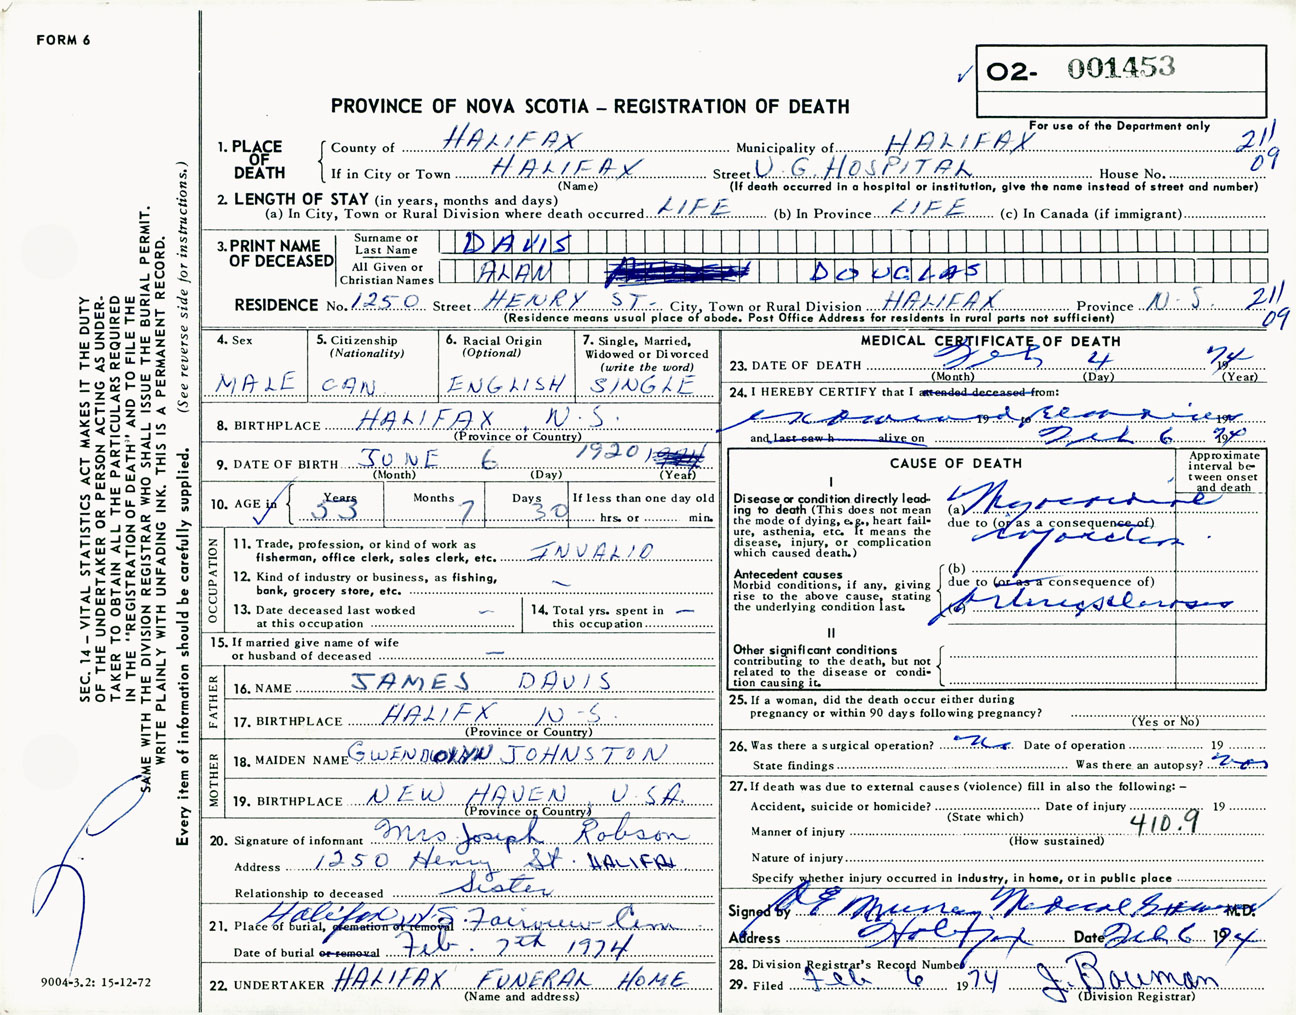 FORM 6
O2- 001453
PROVINCE OF NOVA SCOTIA – REGISTRATION OF DEATH
For use of the Department only
1. PLACE OF DEATH
County of HALIFAX Municipality of HALIFAX 211
If in City or Town HALIFAX Street V. G. HOSPITAL House No. 09
(Name) (If death occurred in a hospital or institution, give the name instead of street and number)
2. LENGTH OF STAY (in years, months and days)
(a) In City, Town or Rural Division where death occurred LIFE (b) In Province LIFE (c) In Canada (if immigrant)
3. PRINT NAME OF DECEASED
Surname or Last Name DAVIS
All Given or Christian Names ALAN DOUGLAS
RESIDENCE No. 1250 Street HENRY ST- City, Town or Rural Division HALIFAX Province N-S. 211
(Residence means usual place of abode. Post Office Address for residents in rural parts not sufficient) 09
4. Sex MALE
5. Citizenship (Nationality) CAN
6. Racial Origin (Optional) ENGLISH
7. Single, Married, Widowed or Divorced (write the word) SINGLE
8. BIRTHPLACE HALIFAX N.S.
(Province or Country)
9. DATE OF BIRTH JUNE 6 1920
(Month) (Day) (Year)
10. AGE in Years 53 Months 7 Days 30 If less than one day old hrs. or min.
OCCUPATION
11. Trade, profession, or kind of work as fisherman, office clerk, sales clerk, etc. INVALID
12. Kind of industry or business, as fishing, bank, grocery store, etc. –
13. Date deceased last worked at this occupation –
14. Total yrs. spent in this occupation –
15. If married give name of wife or husband of deceased –
FATHER
16. NAME JAMES DAVIS
17. BIRTHPLACE HALIFX N-S.
(Province or Country)
MOTHER
18. MAIDEN NAME JOHNSTON
19. BIRTHPLACE NEW HAVEN, U.S.A.
(Province or Country)
20. Signature of informant Mrs Joseph Robson
Address 1250 Henry St. HALIFAX
Relationship to deceased Sister
21. Place of burial, cremation or removal Halifax N.S. Fairview Cem
Date of burial or removal Feb. 7th 1974
22. UNDERTAKER HALIFAX FUNERAL HOME
(Name and address)
MEDICAL CERTIFICATE OF DEATH
23. DATE OF DEATH Feb 4 1974
(Month) (Day) (Year)
24. I HEREBY CERTIFY that I attended deceased from:
19 to 19
and last saw h alive on Feb 6 1974
CAUSE OF DEATH
Approximate interval between onset and death
I
Disease or condition directly leading to death (This does not mean the mode of dying, e.g., heart failure, asthenia, etc. It means the disease, injury, or complication which caused death.)
(a) Myocardial
due to (or as a consequence of)
infarction.
Antecedent causes
Morbid conditions, if any, giving rise to the above cause, stating the underlying condition last.
(b)
due to (or as a consequence of)
(c) Arteriosclerosis
II
Other significant conditions
contributing to the death, but not related to the disease or condition causing it.
25. If a woman, did the death occur either during pregnancy or within 90 days following pregnancy?
(Yes or No)
26. Was there a surgical operation? no Date of operation 19
State findings Was there an autopsy?
27. If death was due to external causes (violence) fill in also the following: –
Accident, suicide or homicide? Date of injury 19
(State which)
Manner of injury 410.9
(How sustained)
Nature of injury
Specify whether injury occurred in industry, in home, or in public place
Signed by Murray Medical Examiner M.D.
Address Halifax Date Feb 6 1974
28. Division Registrar's Record Number
29. Filed Feb 6 1974 J. Bauman
(Division Registrar)
SEC. 14 – VITAL STATISTICS ACT MAKES IT THE DUTY
OF THE UNDERTAKER OR PERSON ACTING AS UNDER-
TAKER TO OBTAIN ALL THE PARTICULARS REQUIRED
IN THE "REGISTRATION OF DEATH" AND TO FILE THE
SAME WITH THE DIVISION REGISTRAR WHO SHALL ISSUE THE BURIAL PERMIT.
WRITE PLAINLY WITH UNFADING INK. THIS IS A PERMANENT RECORD.
Every item of information should be carefully supplied. (See reverse side for instructions.)
9004-3.2: 15-12-72